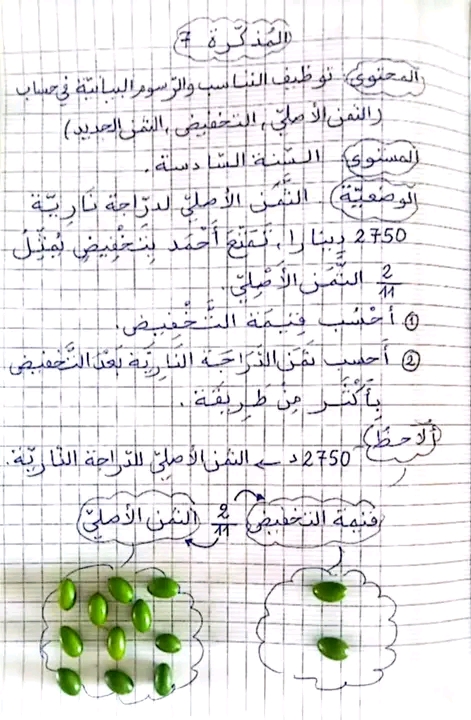 المُذكّرة 7
المحتوى: توظيف التناسب والرّسوم البيانيّة في حساب
(الثمن الأصليّ، التخفيض، الثمن الجديد)
المستوى: السّنة السّادسة.
الوضعيّة: الثَّمَن الأصليّ لدرّاجة ناريّة
2750 دينارا، تمتّعَ أَحْمَد بِتَخْفِيضٍ يُمَثِّلُ
2/11 الثَّمَن الأَصْلِيّ.
① أَحْسُب قِيمَة التَّخْفِيض.
② أَحسب ثمَن الدّرّاجَة النّارِيّة بَعْدَ التَّخفيض
بِأَكْثَر مِنْ طَرِيقَة.
أُلاحظُ
2750د ← الثمن الأصليّ للدّراجة النّاريّة.
قيمة التخفيض 2/11 الثمن الأصليّ